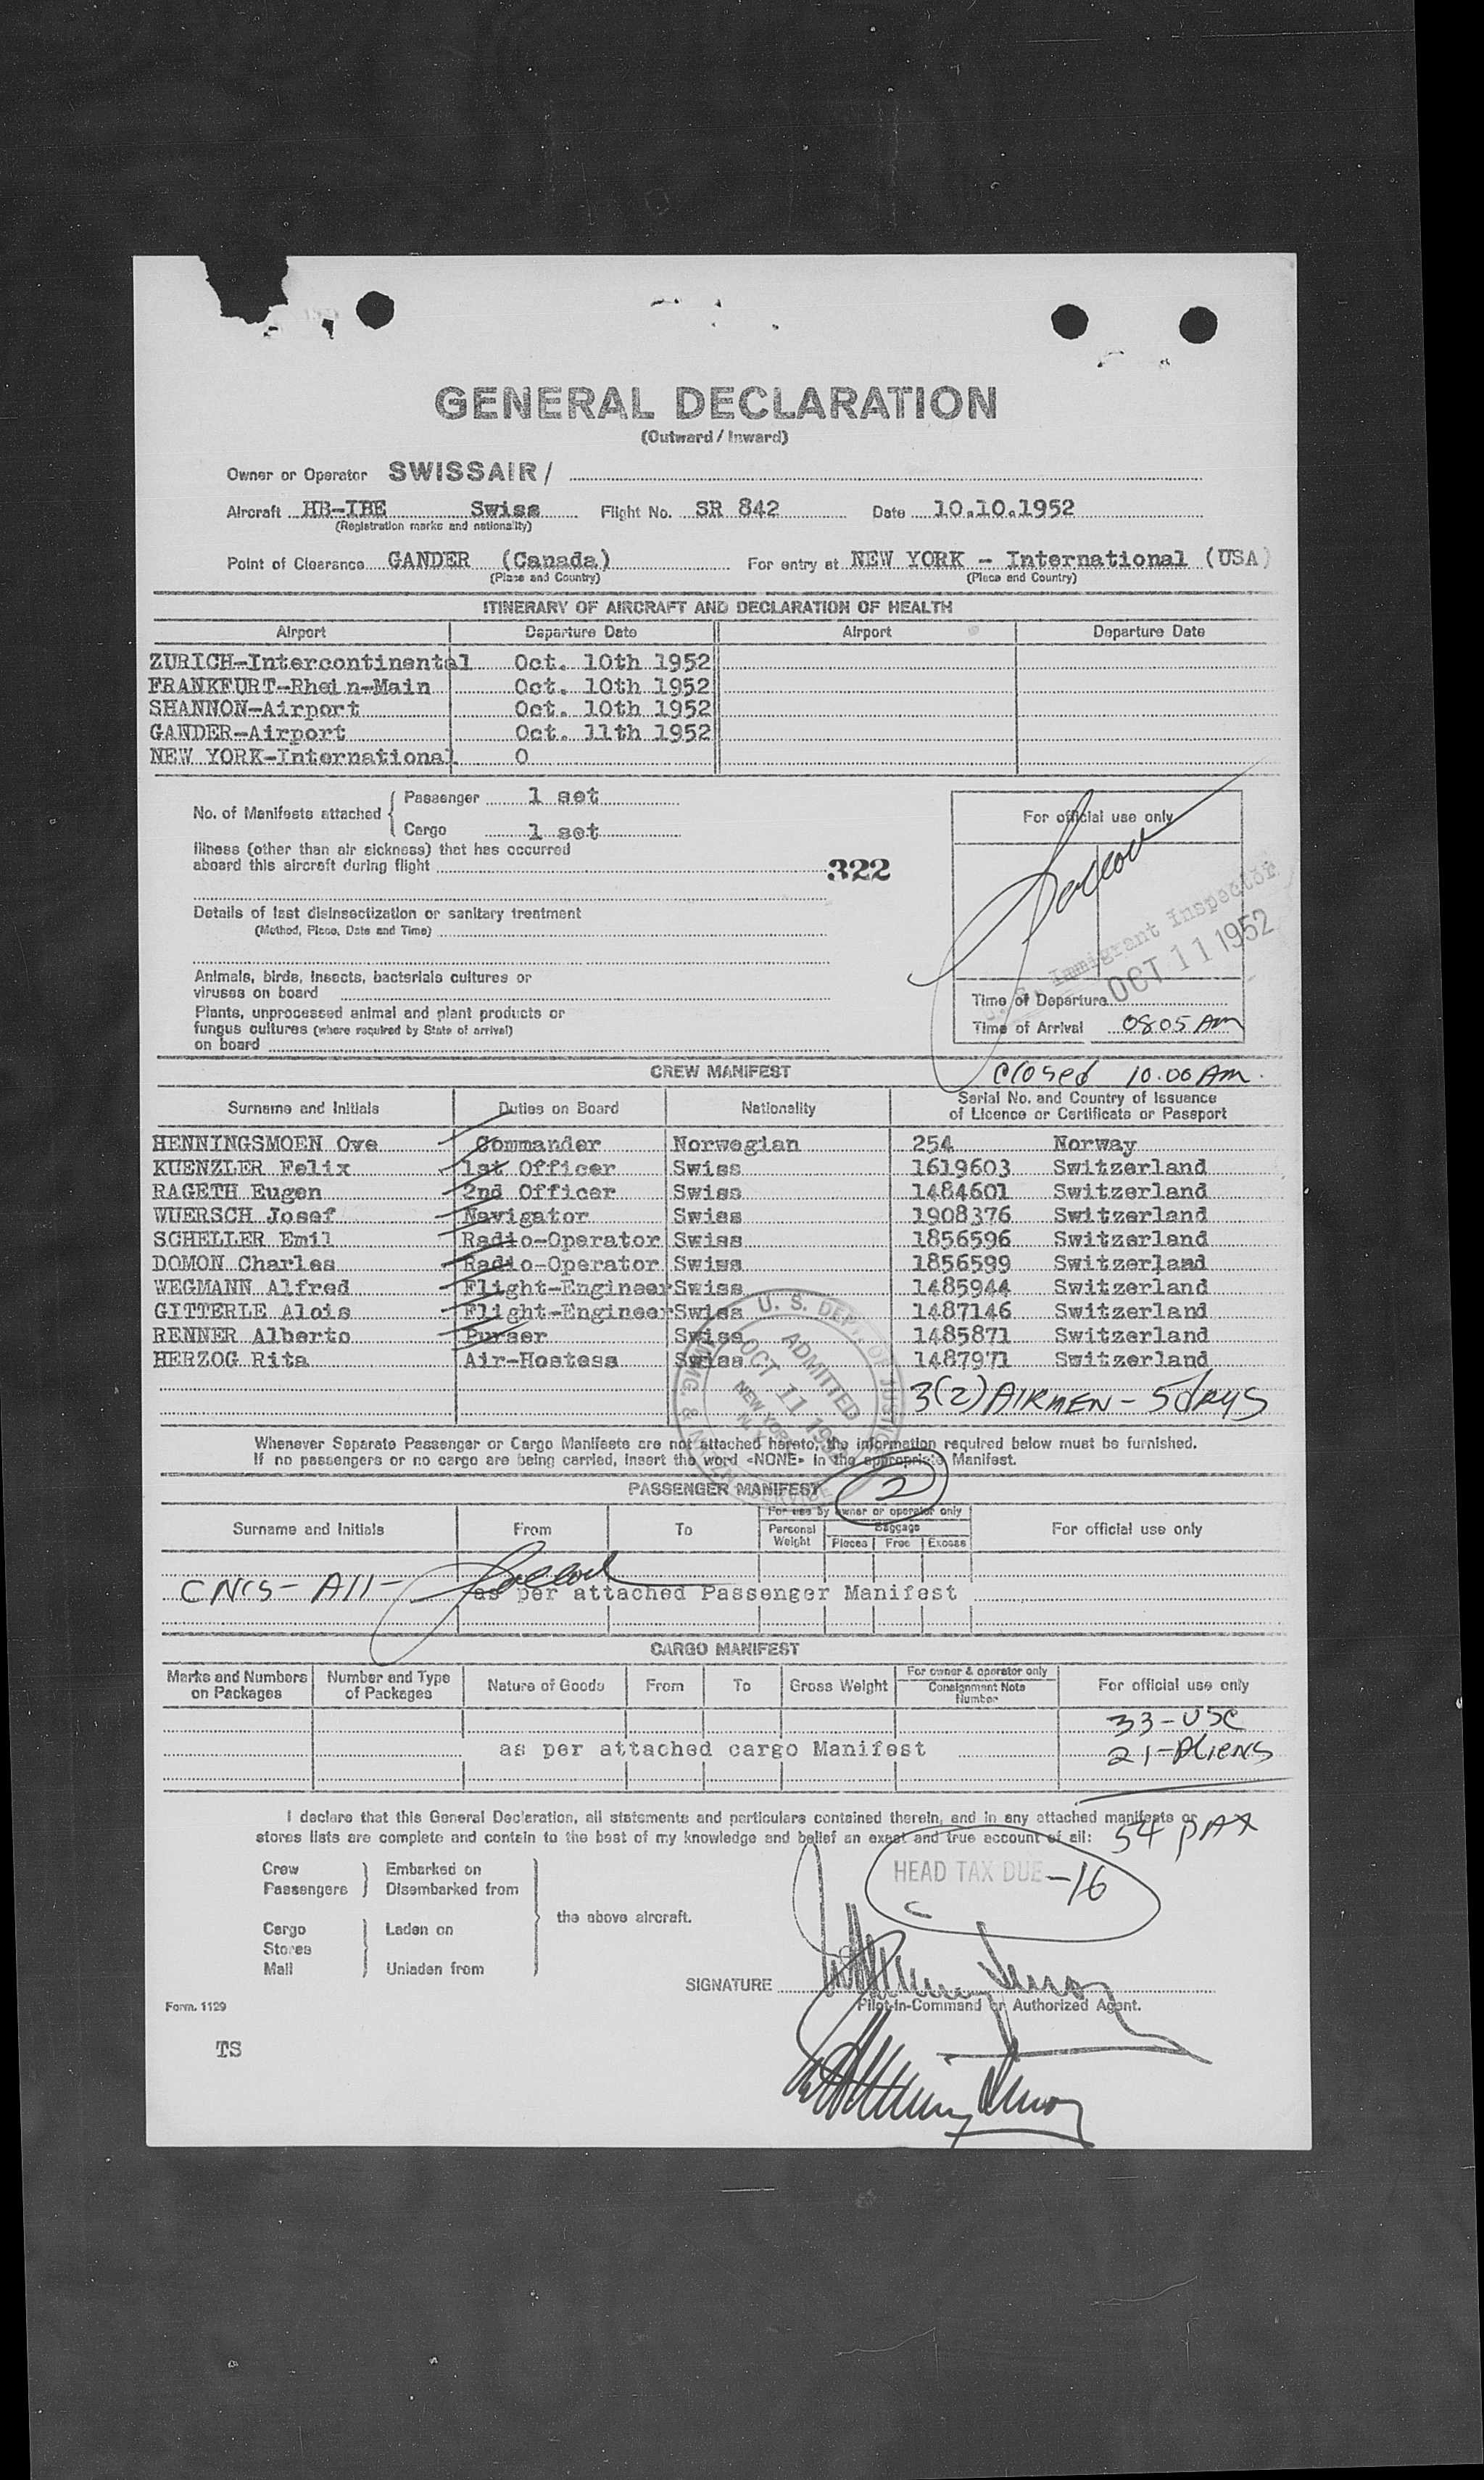 GENERAL DECLARATION
(Outward / Inward)
Owner or Operator SWISSAIR /
Aircraft HB-IBE Swiss Flight No. SR 842 Date 10.10.1952
(Registration marks and nationality)
Point of Clearance GANDER (Canada) For entry at NEW YORK - International (USA)
(Place and Country) (Place and Country)
ITINERARY OF AIRCRAFT AND DECLARATION OF HEALTH
Airport Departure Date Airport Departure Date
ZURICH-Intercontinental Oct. 10th 1952
FRANKFURT-Rhein-Main Oct. 10th 1952
SHANNON-Airport Oct. 10th 1952
GANDER-Airport Oct. 11th 1952
NEW YORK-International 0
No. of Manifests attached
Passenger 1 set
Cargo 1 set
For official use only
Illness (other than air sickness) that has occurred
aboard this aircraft during flight
322
Details of last disinsectization or sanitary treatment
(Method, Place, Date and Time)
Immigrant Inspector
OCT 11 1952
Animals, birds, insects, bacterials cultures or
viruses on board
Plants, unprocessed animal and plant products or
fungus cultures (where required by State of arrival)
on board
Time of Departure
Time of Arrival 0805 Am
CREW MANIFEST
closed 10.00 Am.
Surname and Initials Duties on Board Nationality Serial No. and Country of Issuance
of Licence or Certificate or Passport
HENNINGSMOEN Ove Commander Norwegian 254 Norway
KUENZLER Felix 1st Officer Swiss 1619603 Switzerland
RAGETH Eugen 2nd Officer Swiss 1484601 Switzerland
WUERSCH Josef Navigator Swiss 1908376 Switzerland
SCHELLER Emil Radio-Operator Swiss 1856596 Switzerland
DOMON Charles Radio-Operator Swiss 1856599 Switzerland
WEGMANN Alfred Flight-Engineer Swiss 1485944 Switzerland
GITTERLE Alois Flight-Engineer Swiss 1487146 Switzerland
RENNER Alberto Purser Swiss 1485871 Switzerland
HERZOG Rita Air-Hostess Swiss 1487971 Switzerland
U. S. DEPT. OF JUSTICE
ADMITTED
OCT 11 1952
NEW YORK
N. Y.
IMMIG. & NATZN SERVICE
3(2) AIRMEN - 5 dAYS
Whenever Separate Passenger or Cargo Manifests are not attached hereto, the information required below must be furnished.
If no passengers or no cargo are being carried, insert the word «NONE» in the appropriate Manifest.
PASSENGER MANIFEST
2
Surname and Initials From To For use by owner or operator only For official use only
Personal Weight Baggage
Pieces Free Excess
CNCS - All -
as per attached Passenger Manifest
CARGO MANIFEST
Marks and Numbers on Packages Number and Type of Packages Nature of Goods From To Gross Weight For owner & operator only Consignment Note Number For official use only
33 - USC
as per attached cargo Manifest
21 - Aliens
I declare that this General Declaration, all statements and particulars contained therein, and in any attached manifests or
stores lists are complete and contain to the best of my knowledge and belief an exact and true account of all:
54 pAX
Crew
Passengers
Embarked on
Disembarked from
HEAD TAX DUE - 16
Cargo
Stores
Mail
Laden on
Unladen from
the above aircraft.
SIGNATURE
Pilot-in-Command or Authorized Agent.
Form. 1129
TS